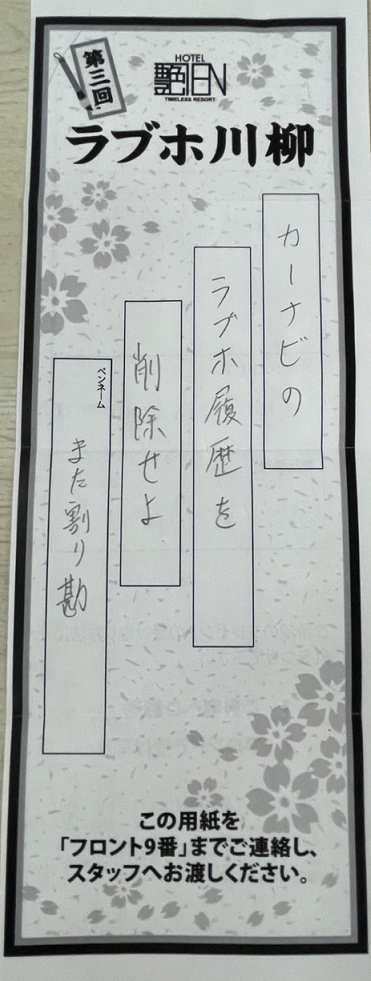 第三回
HOTEL
艶EN
TIMELESS RESORT
ラブホ川柳
カーナビの
ラブホ履歴を
削除せよ
ペンネーム
また割り勘
この用紙を
「フロント9番」までご連絡し、
スタッフへお渡しください。